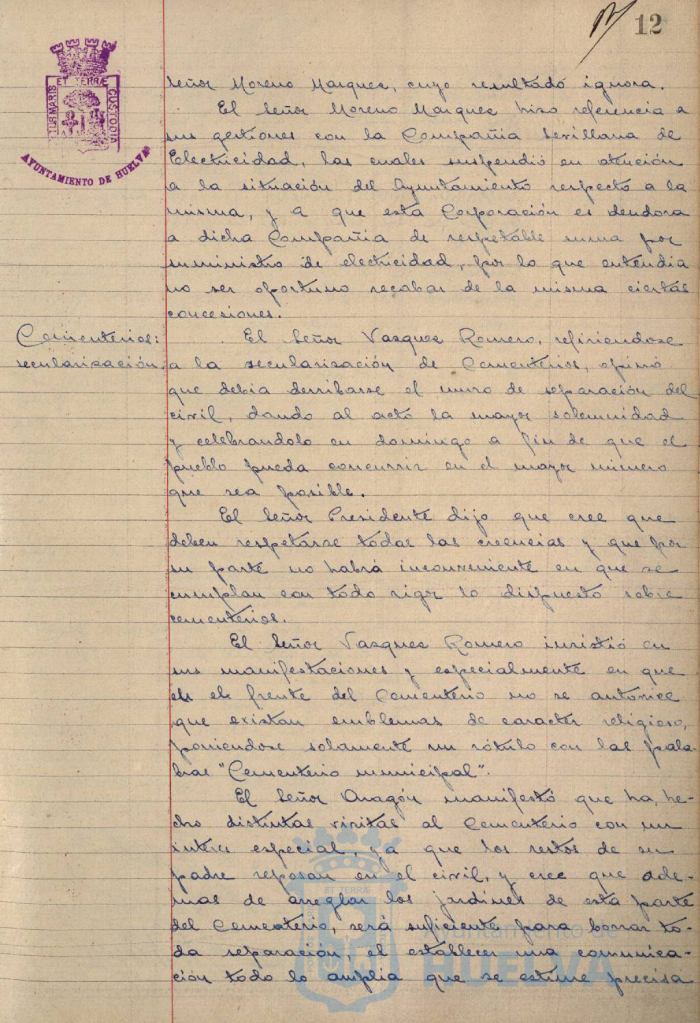 12
PORTUS MARIS ET TERRÆ CUSTODIA
AYUNTAMIENTO DE HUELVA
señor Moreno Marquez, cuyo resultado ignora.
El señor Moreno Marquez hizo referencia a
sus gestiones con la Compañia Sevillana de
Electricidad, las cuales suspendió en atención
a la situación del Ayuntamiento respecto a la
misma, y a que esta Corporación es deudora
a dicha Compañia de respetable suma por
suministro de electricidad, por lo que entendia
no ser oportuno recabar de la misma ciertas
concesiones.
Cementerios:
secularización.
El señor Vazquez Romero, refiriendose
a la secularización de Cementerios, opinó
que debia derribarse el muro de separación del
civil, dando al acto la mayor solemnidad
y celebrandolo en domingo a fin de que el
pueblo pueda concurrir en el mayor número
que sea posible.
El señor Presidente dijo que cree que
deben respetarse todas las creencias y que por
su parte no habrá inconveniente en que se
cumplan con todo rigor lo dispuesto sobre
cementerios.
El señor Vazquez Romero insistió en
sus manifestaciones y especialmente en que
el frente del Cementerio no se autorice
que existan emblemas de caracter religioso,
poniendose solamente un rótulo con las pala-
bras "Cementerio municipal".
El señor Aragón manifestó que ha he-
cho distintas visitas al Cementerio con un
interes especial, ya que los restos de su
padre reposan en el civil, y cree que ade-
mas de arreglar los jardines de esta parte
del Cementerio, será suficiente para borrar to-
da separación, el establecer una comunica-
ción todo lo amplia que se estime precisa
ET TERRÆ
Ayuntamiento de
HUELVA